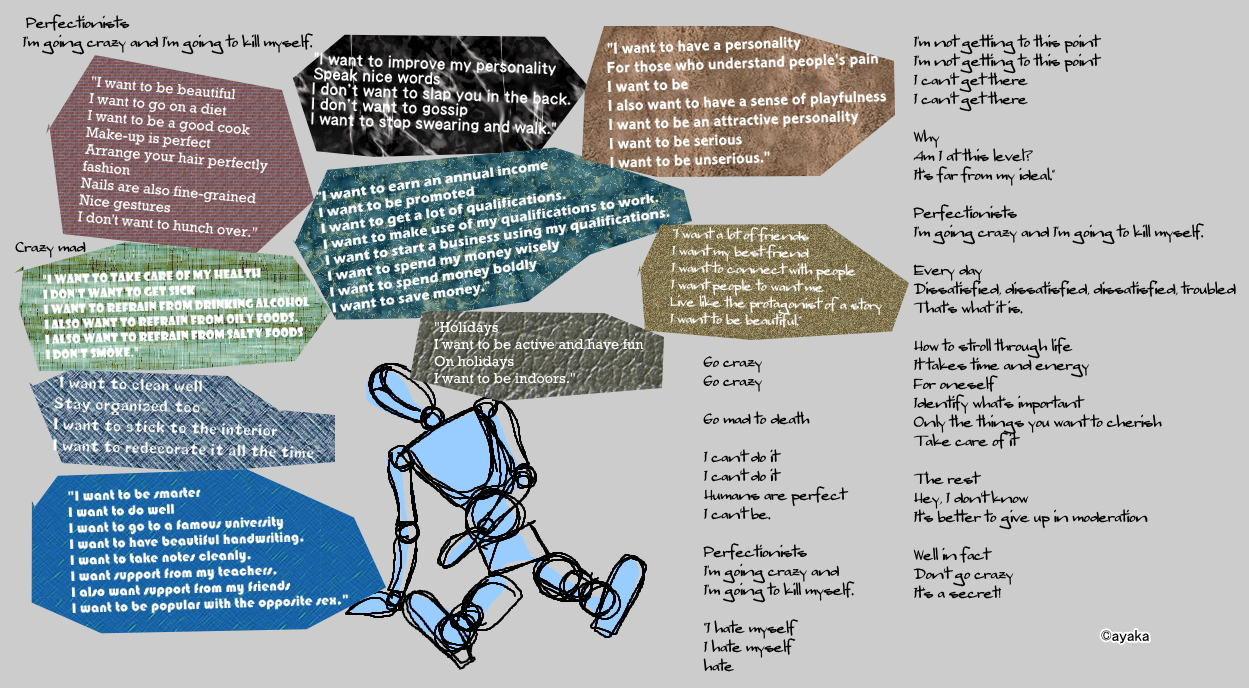 Perfectionists
I'm going crazy and I'm going to kill myself.
"I want to be beautiful
I want to go on a diet
I want to be a good cook
Make-up is perfect
Arrange your hair perfectly
fashion
Nails are also fine-grained
Nice gestures
I don't want to hunch over."
"I want to improve my personality
Speak nice words
I don't want to slap you in the back.
I don't want to gossip
I want to stop swearing and walk."
"I want to have a personality
For those who understand people's pain
I want to be
I also want to have a sense of playfulness
I want to be an attractive personality
I want to be serious
I want to be unserious."
"I want to earn an annual income
I want to be promoted
I want to get a lot of qualifications.
I want to make use of my qualifications to work.
I want to start a business using my qualifications.
I want to spend my money wisely
I want to spend money boldly
I want to save money."
Crazy mad
"I WANT TO TAKE CARE OF MY HEALTH
I DON'T WANT TO GET SICK
I WANT TO REFRAIN FROM DRINKING ALCOHOL
I ALSO WANT TO REFRAIN FROM OILY FOODS.
I ALSO WANT TO REFRAIN FROM SALTY FOODS
I DON'T SMOKE."
"I want a lot of friends
I want my best friend
I want to connect with people
I want people to want me
Live like the protagonist of a story
I want to be beautiful."
"Holidays
I want to be active and have fun
On holidays
I want to be indoors."
I want to clean well
Stay organized too
I want to stick to the interior
I want to redecorate it all the time
"I want to be smarter
I want to do well
I want to go to a famous university
I want to have beautiful handwriting.
I want to take notes cleanly.
I want support from my teachers.
I also want support from my friends
I want to be popular with the opposite sex."
Go crazy
Go crazy
Go mad to death
I can't do it
I can't do it
Humans are perfect
I can't be.
Perfectionists
I'm going crazy and
I'm going to kill myself.
"I hate myself
I hate myself
hate
I'm not getting to this point
I'm not getting to this point
I can't get there
I can't get there
Why
Am I at this level?
It's far from my ideal."
Perfectionists
I'm going crazy and I'm going to kill myself.
Every day
Dissatisfied, dissatisfied, dissatisfied, troubled
That's what it is.
How to stroll through life
It takes time and energy
For oneself
Identify what's important
Only the things you want to cherish
Take care of it
The rest
Hey, I don't know
It's better to give up in moderation
Well in fact
Don't go crazy
It's a secret!
©ayaka